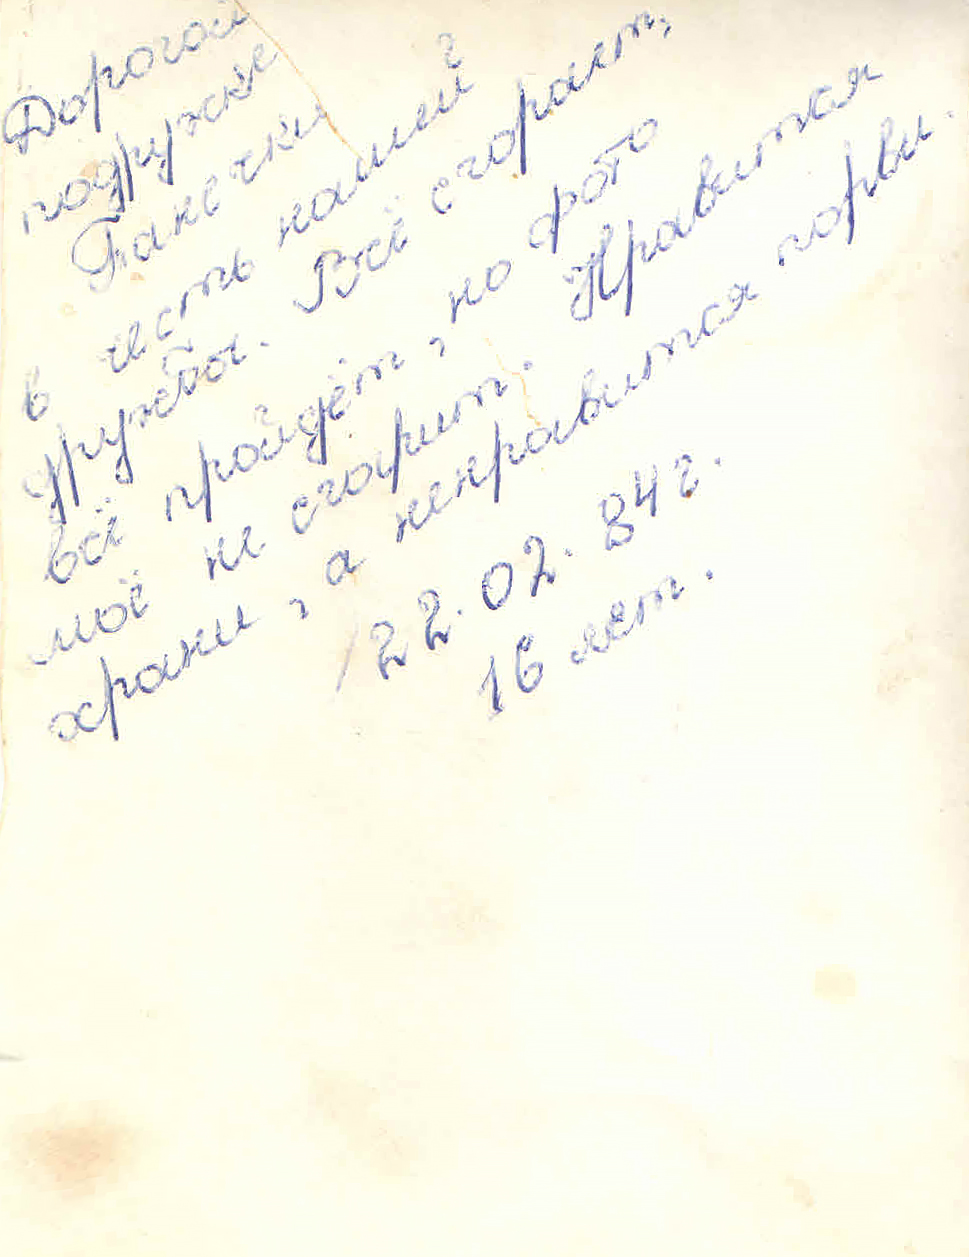 Дорогой
подружке
Ганечки
в честь нашей
дружбы. Всё сгорает,
всё пройдёт, но фото
моё не сгорит. Нравится
храни, а ненравится порви.
22.02.84г.
16 лет.